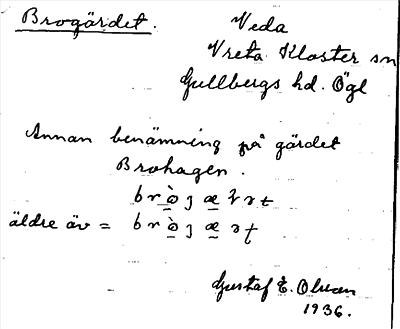 Brogärdet. Veda
Vreta Kloster sn
Gullbergs hd. Ögl
Annan benämning på gärdet
Brohagen.
äldre äv =
Gustaf E. Olsson
1936.